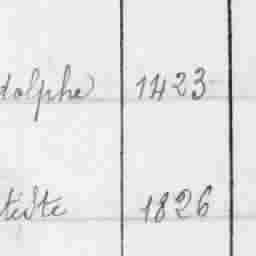 dolphe 1423
tiste 1826